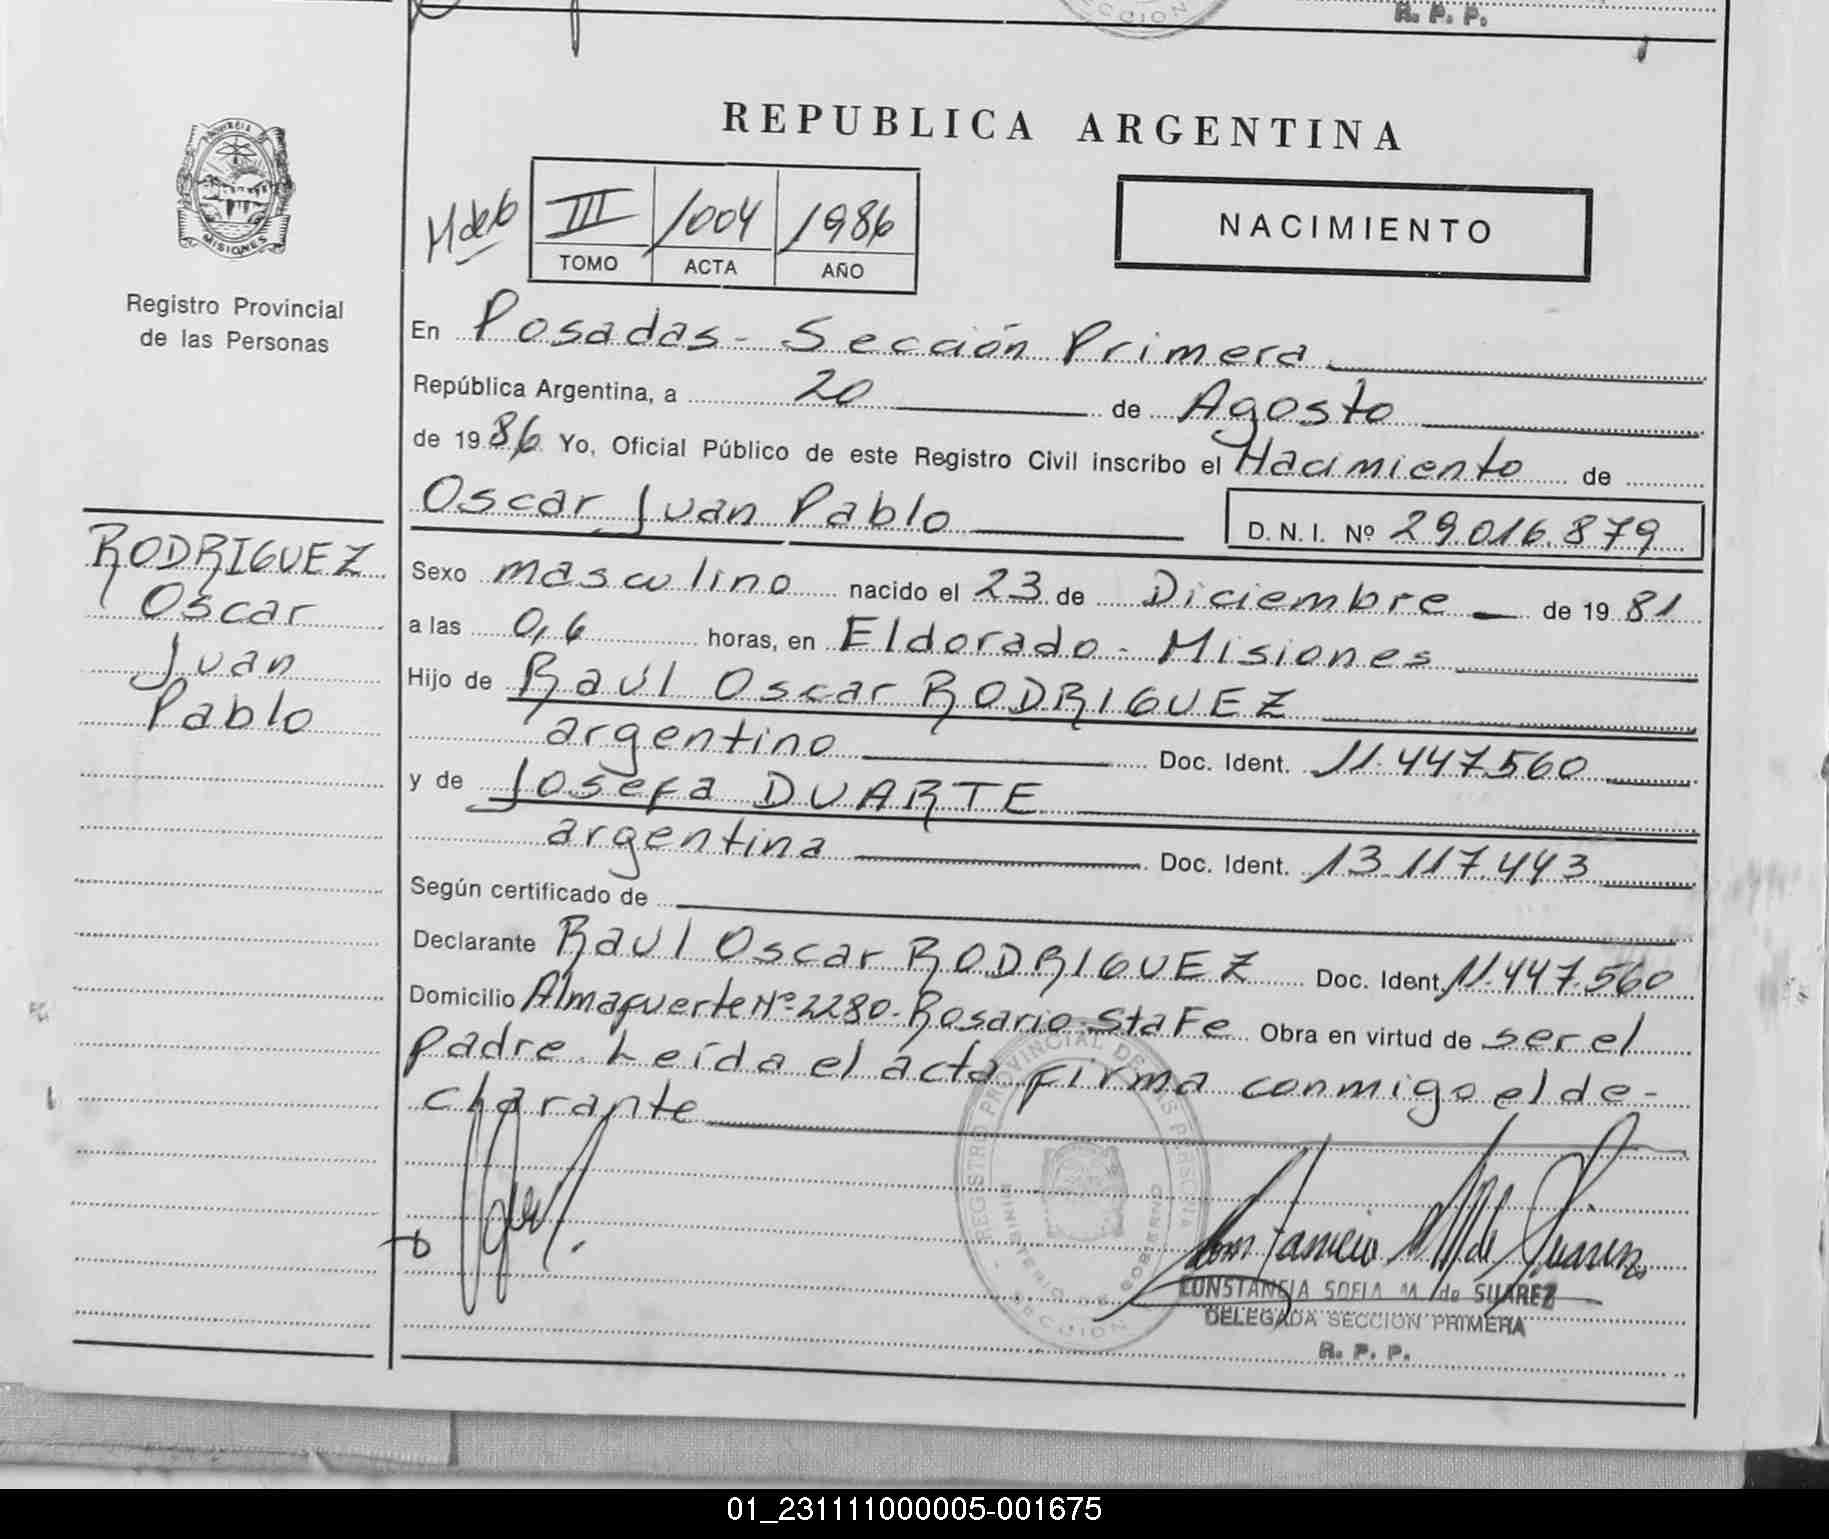 ECCION
R. P. P.
PROVINCIA DE
MISIONES
Registro Provincial
de las Personas
RODRIGUEZ
Oscar
Juan
Pablo
REPUBLICA ARGENTINA
III 1004 1986
TOMO ACTA AÑO
NACIMIENTO
En Posadas - Sección Primera
República Argentina, a 20 de Agosto
de 1986 Yo, Oficial Público de este Registro Civil inscribo el Nacimiento de
Oscar Juan Pablo D. N. I. Nº 29.016.879
Sexo masculino nacido el 23 de Diciembre de 1981
a las 0,6 horas, en Eldorado - Misiones
Hijo de Raúl Oscar RODRIGUEZ
argentino Doc. Ident. 11.447.560
y de Josefa DUARTE
argentina Doc. Ident. 13.117.443
Según certificado de
Declarante Raúl Oscar RODRIGUEZ Doc. Ident. 11.447.560
Domicilio Almafuerte Nº 2280 - Rosario - Sta Fe Obra en virtud de ser el
padre. Leída el acta firma conmigo el de-
clarante
REGISTRO PROVINCIAL DE LAS PERSONAS
MINISTERIO DE GOBIERNO
SECCION
CONSTANCIA SOFIA M. de SUAREZ
DELEGADA SECCION PRIMERA
R. P. P.
01_231111000005-001675